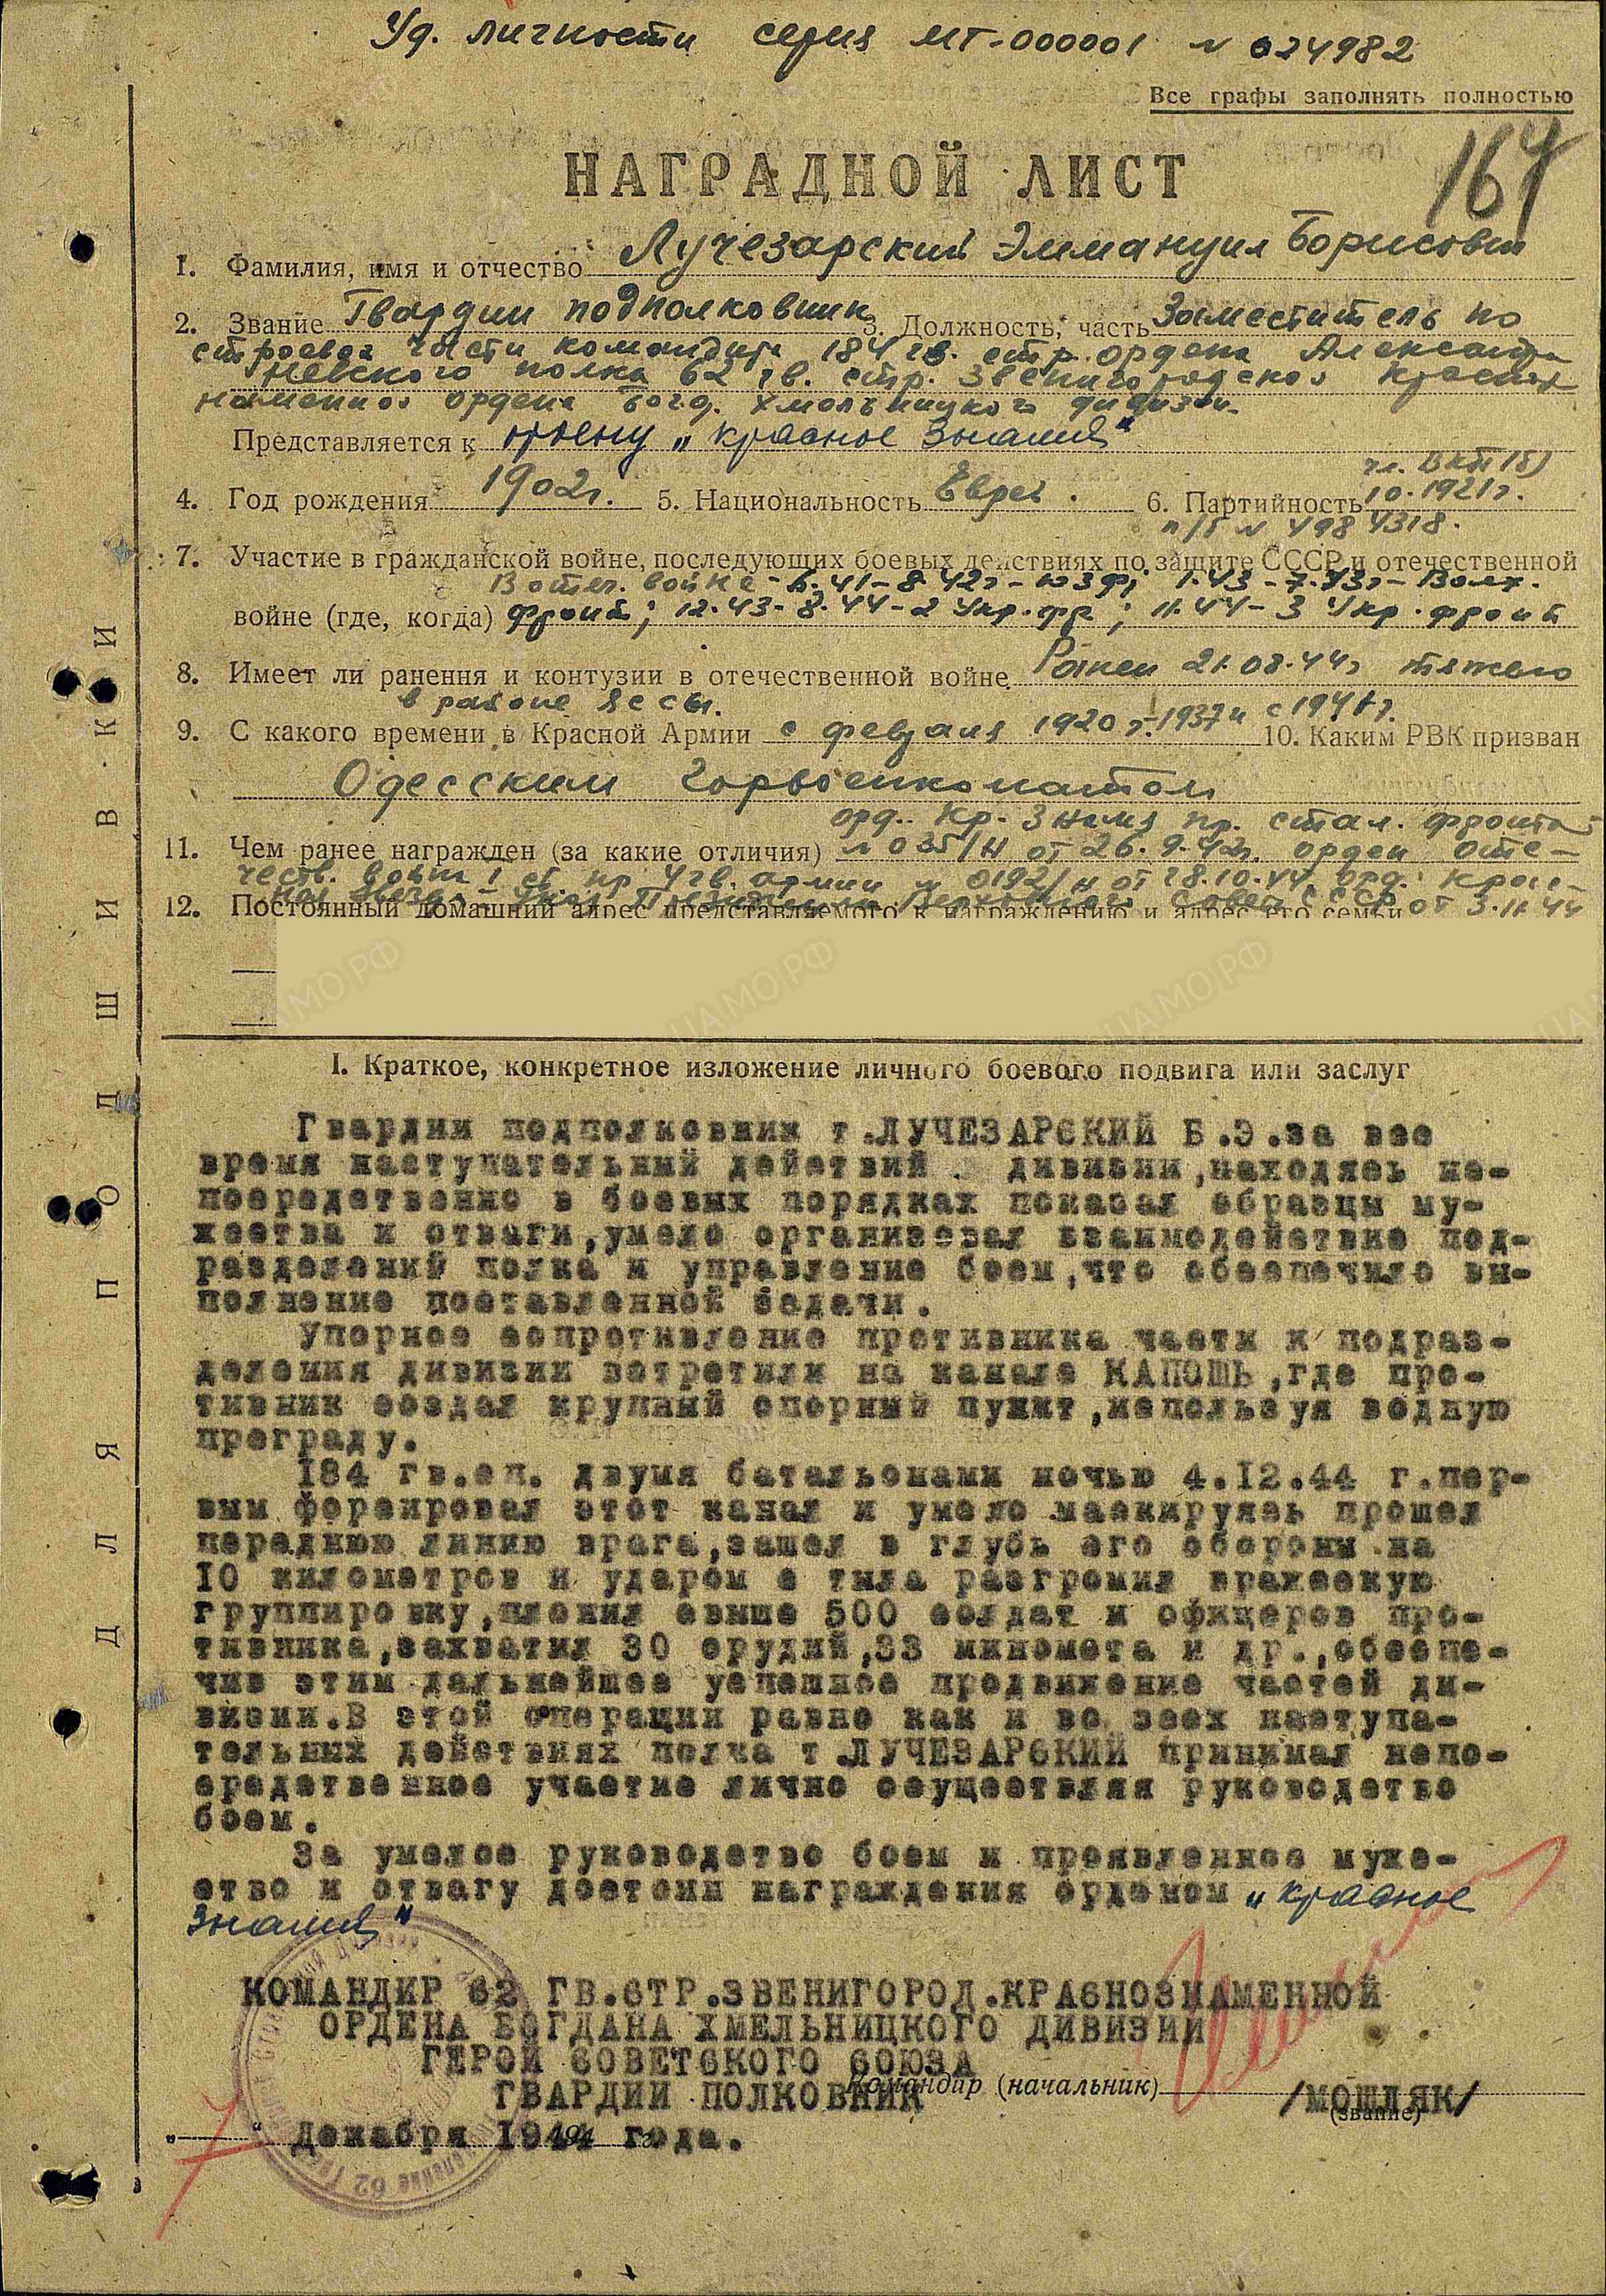 Уд. личности серия МГ-000001 N 024982
Все графы заполнять полностью
167
НАГРАДНОЙ ЛИСТ
1. Фамилия, имя и отчество Лучезарский Эммануил Борисович
2. Звание Гвардии подполковник 3. Должность, часть Заместитель по
строевой части командира 184 гв. стр. ордена Александра
Невского полка 62 гв. стр. Звенигородской Краснознаменной ордена Богд. Хмельницкого дивизии
Представляется к ордену „Красное Знамя"
чл. ВКП(б)
4. Год рождения 1902г. 5. Национальность Еврей. 6. Партийность 10.1921г.
п/б N 4984318.
7. Участие в гражданской войне, последующих боевых действиях по защите СССР и отечественной
В отеч. войне - 6.41-8.42г-ЮЗФ; 1.43-7.43г-Волх.
войне (где, когда) фронт; 12.43-8.44-2 Укр.фр; 11.44-3 Укр. фронт
8. Имеет ли ранения и контузии в отечественной войне Ранен 21.08.44г тяжело
в районе Яссы.
9. С какого времени в Красной Армии с февраля 1920г-1937 и с 1941г. 10. Каким РВК призван
Одесским Горвоенкоматом
орд. Кр. Знамя пр. стал. фронта
11. Чем ранее награжден (за какие отличия) N 035/н от 26.9.42г. орден Отечеств. войны I ст. пр 4 гв. армии N 0192/н от 28.10.44 орд. Красная Звезда - Указ Президиума Верховного Совета СССР от 3.11.44
12. Постоянный домашний адрес представляемого к награждению и адрес его семьи
I. Краткое, конкретное изложение личного боевого подвига или заслуг
Гвардии подполковник т.ЛУЧЕЗАРСКИЙ Б.Э.за все
время наступательный действий . дивизии,находясь не-
посредственно в боевых порядках показал образцы му-
жества и отваги,умело организовал взаимодействие под-
разделений полка и управление боем,что обеспечило вы-
полнение поставленной задачи.
Упорное сопротивление противника части и подраз-
деления дивизии встретили на канале КАПОШЬ,где про-
тивник создал крупный опорный пункт,используя водную
преграду.
184 гв.сп. двумя батальонами ночью 4.12.44 г.пер-
вым форсировал этот канал и умело маскируясь прошел
переднюю линию врага,зашел в глубь его обороны на
10 километров и ударом с тыла разгромил вражескую
группировку,пленил свыше 500 солдат и офицеров про-
тивника,захватил 30 орудий,33 миномета и др.,обеспе-
чив этим дальнейшее успешное продвижение частей ди-
визии.В этой операции равно как и во всех наступа-
тельных действиях полка т.ЛУЧЕЗАРСКИЙ принимал непо-
средственное участие лично осуществляя руководство
боем.
За умелое руководство боем и проявленное муже-
ство и отвагу достоин награждения орденом „Красное
Знамя"
КОМАНДИР 62 ГВ.СТР.ЗВЕНИГОРОД.КРАСНОЗНАМЕННОЙ
ОРДЕНА БОГДАНА ХМЕЛЬНИЦКОГО ДИВИЗИИ
ГЕРОЙ СОВЕТСКОГО СОЮЗА
Командир (начальник)
ГВАРДИИ ПОЛКОВНИК /МОШЛЯК/
(звание)
„ 7 " Декабря 1944 года.
ДЛЯ ПОДШИВКИ